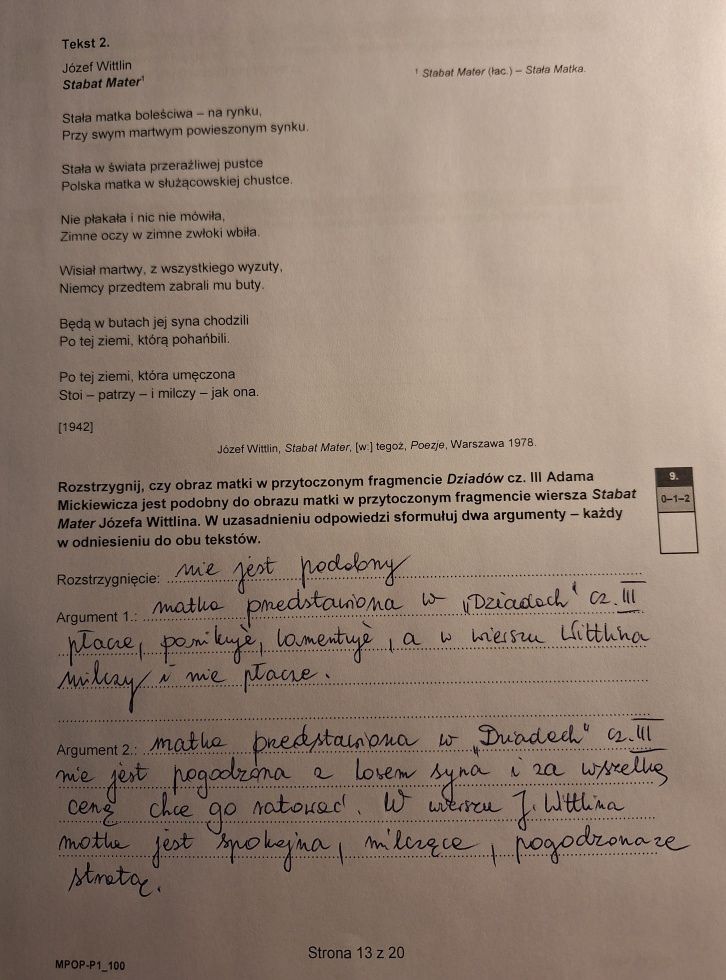 Tekst 2.
Józef Wittlin
Stabat Mater¹
¹ Stabat Mater (łac.) – Stała Matka.
Stała matka boleściwa – na rynku,
Przy swym martwym powieszonym synku.
Stała w świata przeraźliwej pustce
Polska matka w służącowskiej chustce.
Nie płakała i nic nie mówiła,
Zimne oczy w zimne zwłoki wbiła.
Wisiał martwy, z wszystkiego wyzuty,
Niemcy przedtem zabrali mu buty.
Będą w butach jej syna chodzili
Po tej ziemi, którą pohańbili.
Po tej ziemi, która umęczona
Stoi – patrzy – i milczy – jak ona.
[1942]
Józef Wittlin, Stabat Mater, [w:] tegoż, Poezje, Warszawa 1978.
Rozstrzygnij, czy obraz matki w przytoczonym fragmencie Dziadów cz. III Adama
Mickiewicza jest podobny do obrazu matki w przytoczonym fragmencie wiersza Stabat
Mater Józefa Wittlina. W uzasadnieniu odpowiedzi sformułuj dwa argumenty – każdy
w odniesieniu do obu tekstów.
9.
0–1–2
Rozstrzygnięcie: nie jest podobny
Argument 1.: matka przedstawiona w „Dziadach" cz. III
płacze, panikuje, lamentuje, a w wierszu Wittlina
milczy i nie płacze.
Argument 2.: matka przedstawiona w „Dziadach" cz. III
nie jest pogodzona z losem syna i za wszelką
cenę chce go ratować. W wierszu J. Wittlina
matka jest spokojna, milcząca, pogodzona ze
stratą.
Strona 13 z 20
MPOP-P1_100